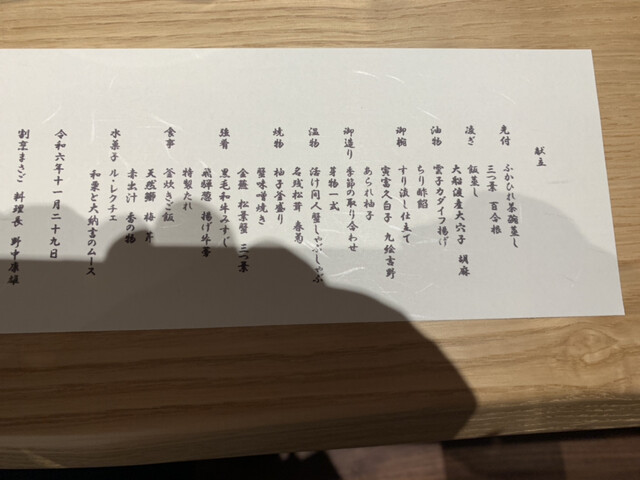 献立
先付 ふかひれ茶碗蒸し
三つ葉 百合根
凌ぎ 飯蒸し
大船渡産大穴子 胡麻
油物 雲子カダイフ揚げ
ちり酢餡
御椀 すり流し仕立て
寅富久白子 九絵吉野
あられ柚子
御造り 季節の取り合わせ
芽物一式
温物 活け間人蟹しゃぶしゃぶ
名残松茸 春菊
焼物 柚子釜盛り
蟹味噌焼き
金盞 松葉蟹 三つ葉
強肴 黒毛和牛みすじ
飛騨葱 揚げ牛蒡
特製たれ
食事 釜炊きご飯
天然鰤 梅 芹
赤出汁 香の物
水菓子 ル・レクチェ
和栗と大納言のムース
令和六年十一月二十九日
割烹まさご 料理長 野中康雄